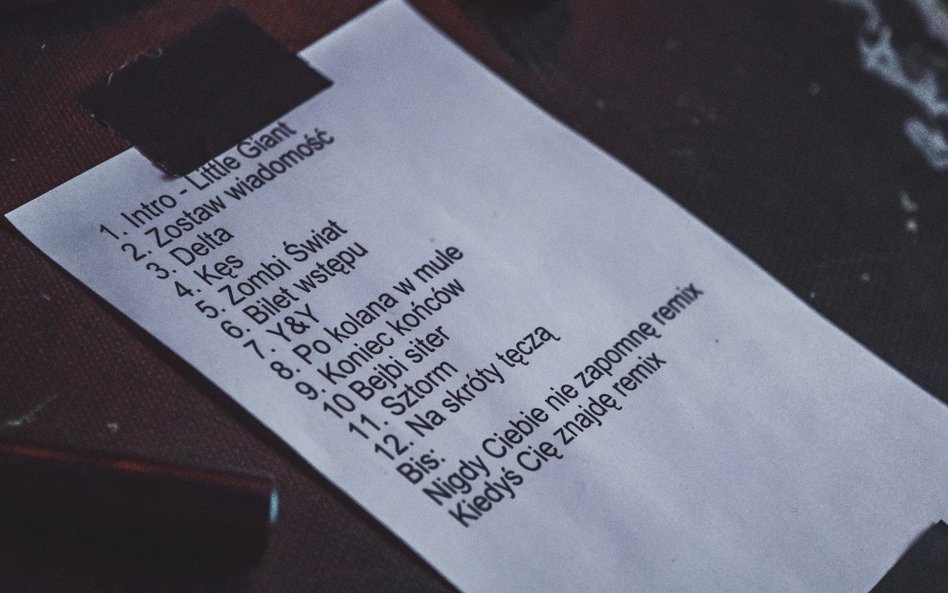 1. Intro - Little Giant
2. Zostaw wiadomość
3. Delta
4. Kęs
5. Zombi Świat
6. Bilet wstępu
7. Y&Y
8. Po kolana w mule
9. Koniec końców
10 Bejbi siter
11. Sztorm
12. Na skróty tęczą
Bis:
Nigdy Ciebie nie zapomnę remix
Kiedyś Cię znajdę remix